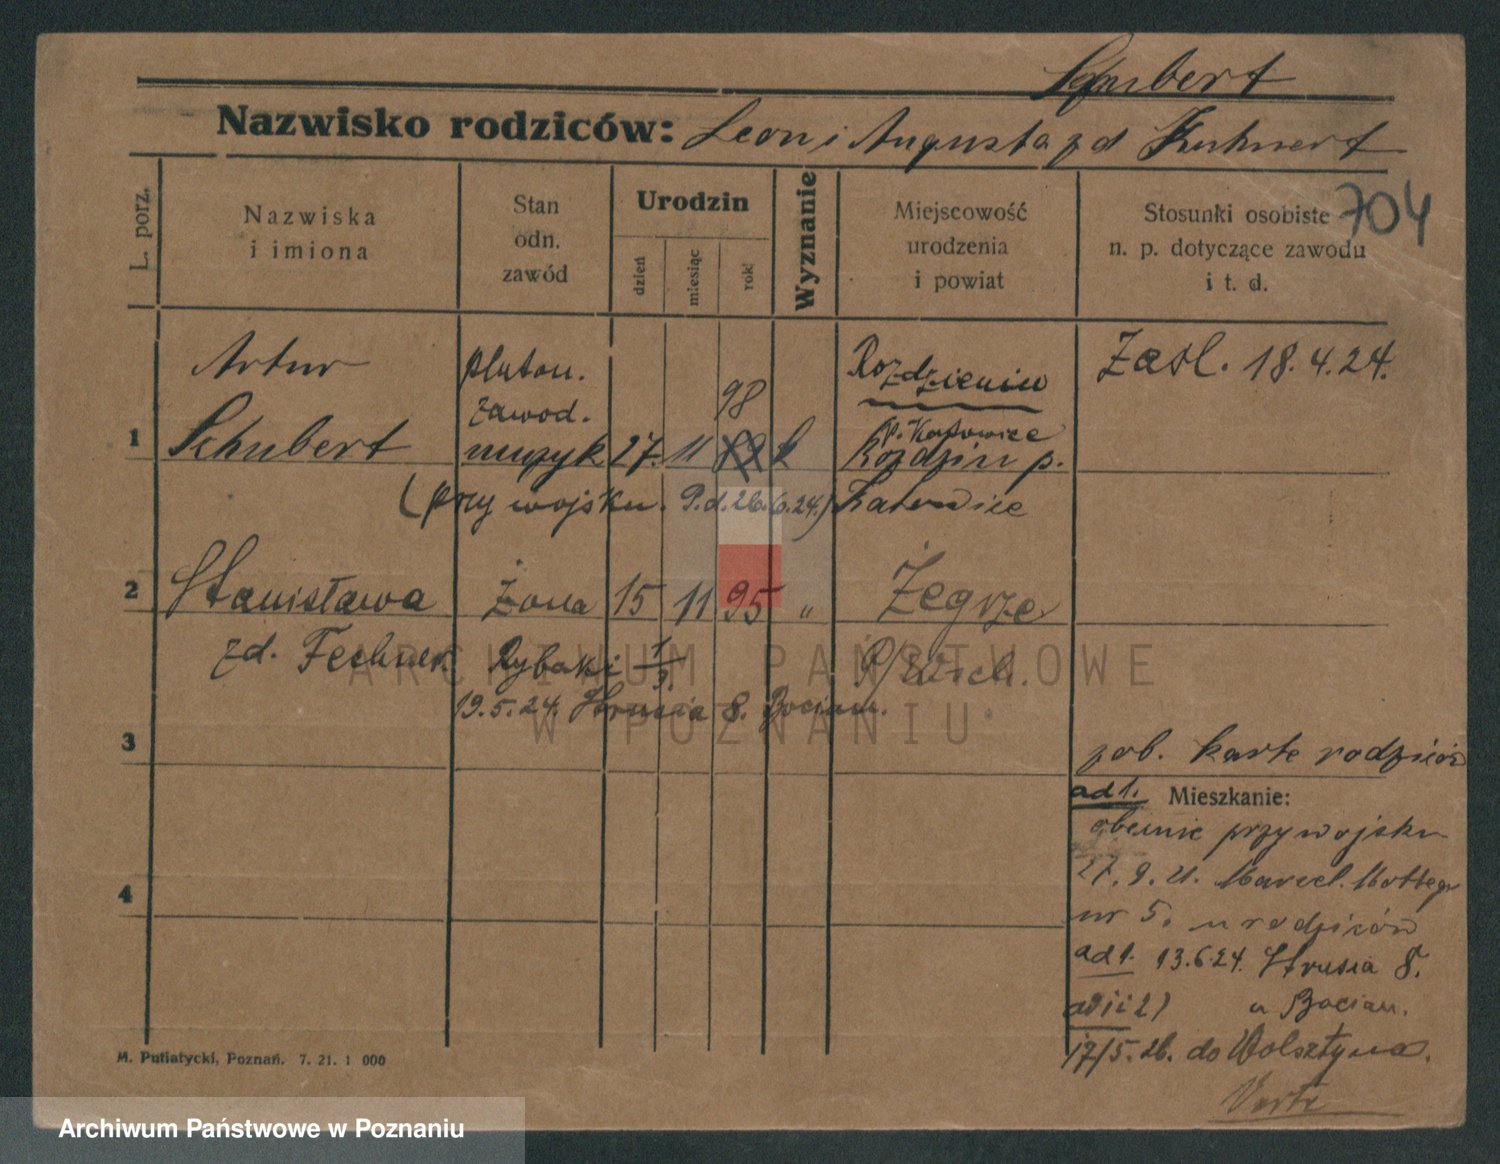 Schubert
Nazwisko rodziców: Leon i Augusta zd Kuhnert
704
L. porz.
Nazwiska
i imiona
Stan
odn.
zawód
Urodzin
dzień
miesiąc
rok
Wyznanie
Miejscowość
urodzenia
i powiat
Stosunki osobiste
n. p. dotyczące zawodu
i t. d.
Artur
Schubert
1
pluton.
zawod.
muzyk
27.
11
98
k
Rozdzieniu
p. Katowice
Rozdzin p.
Katowice
Zasl. 18.4.24.
(przy wojsku. 9.d.26.6.24.)
2
Stanisława
żona
15
11
95
"
Żegrze
zd. Fechner
Rybaki
19.5.24. Strusia 8. Bocian.
ARCHIWUM PAŃSTWOWE
W POZNANIU
3
zob. karte rodziców
ad 1. Mieszkanie:
obecnie przy wojsku
27.9.21. Marcel. Mottego
nr 5. u rodziców
4
ad 1. 13.6.24. Strusia 8.
u Bocian.
17/5.26. do Wolsztyna.
M. Putiatycki, Poznań. 7. 21. 1 000
Archiwum Państwowe w Poznaniu